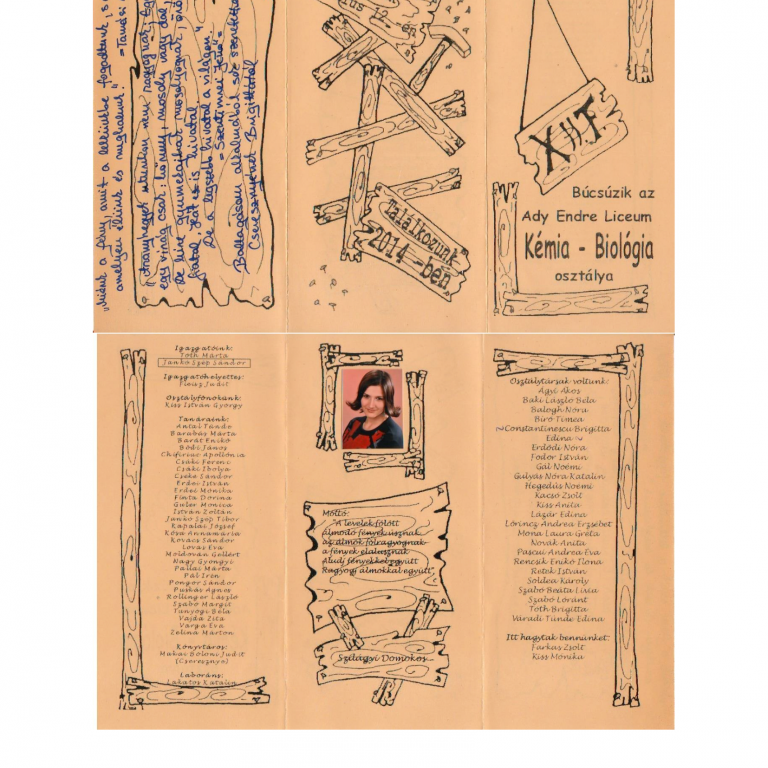 „Miénk a fény, amit a lelkünkbe fogadtunk, s a
amelyen élünk és meghalunk."
=Tamási
egy virág csak: könny, mosoly vagy dal,
De híre gyümölcsikar mosolyognak,
fiatal, hát ez is hivatal
De a legszebb hivatal a világon
=Szentimrei Jenő=
Ballagásom alkalmából sok szeretettel
Cseresznyéné Brigittától
12.
Találkozunk
2014 -ben
XII.F
Búcsúzik az
Ady Endre Líceum
Kémia - Biológia
osztálya
Igazgatóink:
Tóth Márta
Jankó Szép Sándor
Igazgatóhelyettes:
Pinisz Judit
Osztályfőnökünk:
Kiss István György
Tanáraink:
Antal Tünde
Barabás Márta
Barát Enikő
Bódi János
Chifiriuc Apollónia
Csáki Ferenc
Csáki Ibolya
Cseke Sándor
Erdei István
Erdei Mónika
Finta Dorina
Guler Monica
István Zoltán
Jankó Szép Tibor
Kapalai József
Kósa Annamária
Kovács Sándor
Lovas Éva
Moldován Gellért
Nagy Gyöngyi
Pallai Márta
Pál Irén
Pongor Sándor
Puskás Ágnes
Rollinger László
Szabó Margit
Tunyogi Béla
Vajda Zita
Varga Éva
Zelina Márton
Könyvtáros:
Makai Bölöni Judit
(Cseresznye)
Laboráns:
Lakatos Katalin
Mottó:
"A levelek fölött
álmodó fények úsznak
az álmok fölragyognak
a fények elalusznak
Aludj fényekkel együtt
Ragyogj álmokkal együtt"
Szilágyi Domokos
Osztálytársak voltunk:
Ágyi Ákos
Baki László Béla
Balogh Nóra
Bíró Tímea
~Constantinescu Brigitta
Edina ~
Erdődi Nóra
Fodor István
Gál Noémi
Gulyás Nóra Katalin
Hegedüs Noémi
Kacsó Zsolt
Kiss Anita
Lázár Edina
Lőrincz Andrea Erzsébet
Mona Laura Gréta
Novák Anita
Pascui Andrea Éva
Rencsik Enikő Ilona
Retek István
Soldea Károly
Szabó Beáta Lívia
Szabó Lóránt
Tóth Brigitta
Váradi Tünde Edina
Itt hagytak bennünket:
Farkas Zsolt
Kiss Mónika